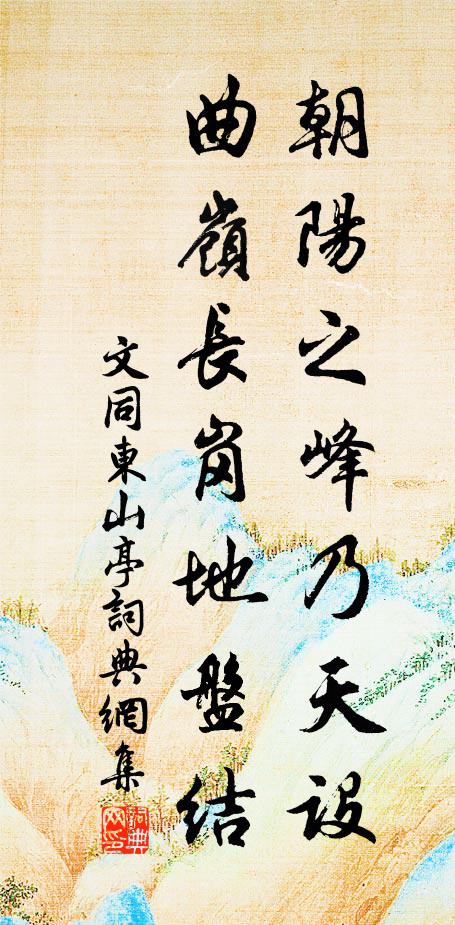 朝陽之峰乃天設
曲嶺長崗地盤結
文同東山亭詞典網集
詞典